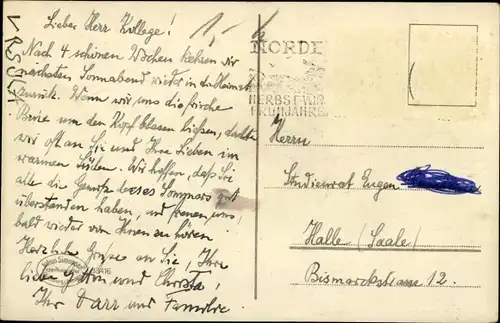 Lieber Herr Kollege!
Nach 4 schönen Wochen kehren wir
nächsten Sonnabend wieder in die Heimat
zurück. Wenn wir uns die frische
Brise um den Kopf blasen ließen, dachten
wir oft an Sie und Ihre Lieben im
warmen Süden. Wir hoffen, daß Sie
alle die Genüsse dieses Sommers gut
überstanden haben, und freuen uns,
bald wieder von Ihnen zu hören.
Herzliche Grüße an Sie, Ihre
liebe Gattin und Christa!
Ihr Darr und Familie.
NORDE
HERBST WIN
FRÜHJAHRS
Herrn
Studienrat Eugen
Halle (Saale)
Bismarckstrasse 12.